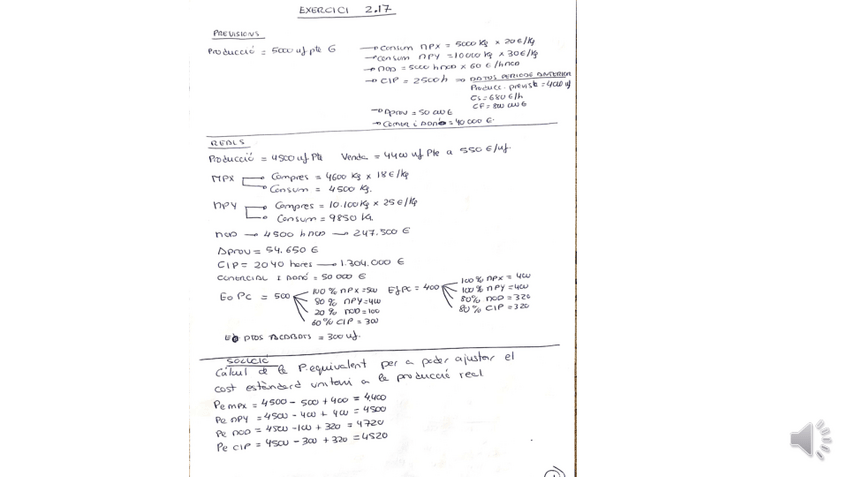 EXERCICI 2.17
PREVISIONS
Producció = 5000 uf pte G
→ Consum MPX = 5000 kg × 20 €/kg
→ Consum MPY = 10000 kg × 30 €/kg
→ MOD = 5000 hMOD × 60 €/hMOD
→ CIP = 2500 h → DATOS PERIODE ANTERIOR
Producc. prevista = 4000 uf
CS = 680 €/h
CF = 800 000 €
→ Aprov = 50 000 €
→ Comer i Admó = 40 000 €
REALS
Producció = 4500 uf Pte Venda = 4400 uf Pte a 550 €/uf
MPX → Compres = 4600 kg × 18 €/kg
→ Consum = 4500 kg.
MPY → Compres = 10.100 kg × 25 €/kg
→ Consum = 9850 kg.
MOD → 4500 hMOD → 247.500 €
Aprov = 54.650 €
CIP = 2040 hores → 1.304.000 €
Comercial i Admó = 50 000 €
Eo PC = 500
100% MPX = 500
80% MPY = 400
20% MOD = 100
60% CIP = 300
Ef PC = 400
100% MPX = 400
100% MPY = 400
80% MOD = 320
80% CIP = 320
Eo ptos acabats = 300 uf.
SOLUCIÓ
Càlcul de la P. equivalent per a poder ajustar el
cost estàndard unitari a la producció real
Pe MPX = 4500 - 500 + 400 = 4.400
Pe MPY = 4500 - 400 + 400 = 4500
Pe MOD = 4500 - 100 + 320 = 4720
Pe CIP = 4500 - 300 + 320 = 4520
1